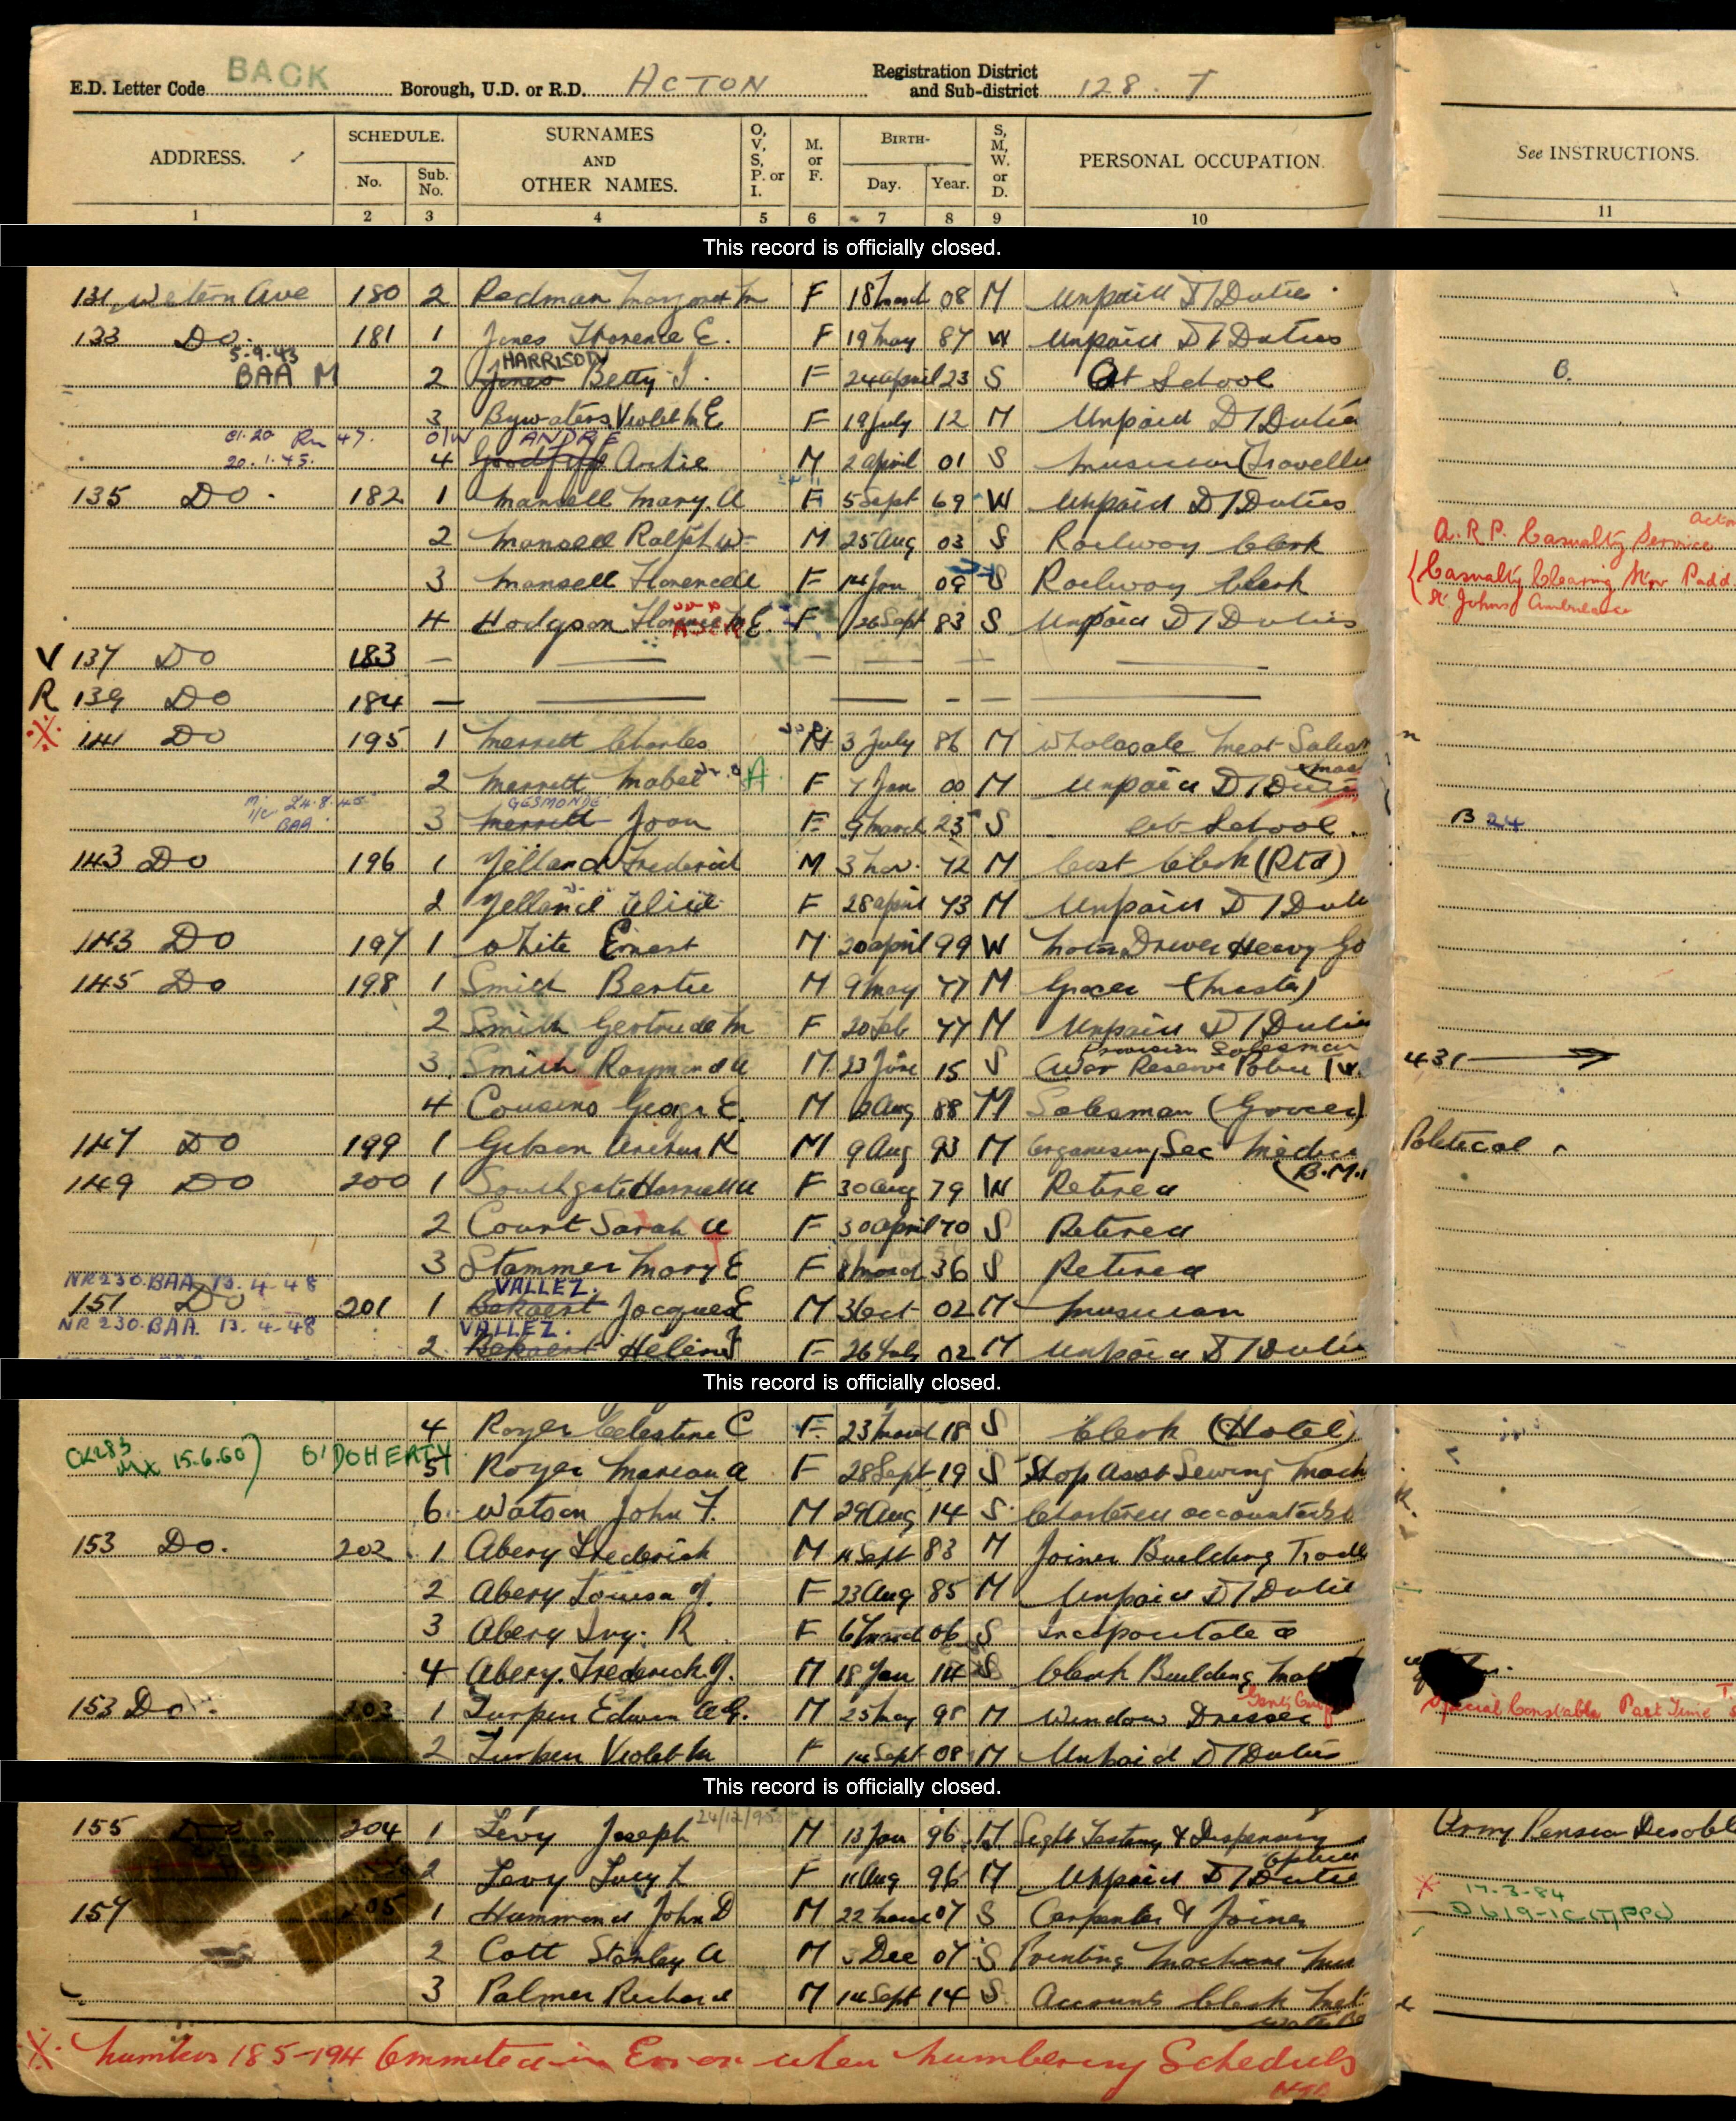 E.D. Letter Code BACK Borough, U.D. or R.D. ACTON Registration District and Sub-district 128. I
ADDRESS. SCHEDULE. No. Sub. No. SURNAMES AND OTHER NAMES. O, V, S, P. or I. M. or F. BIRTH- Day. Year. S, M, W. or D. PERSONAL OCCUPATION. See INSTRUCTIONS.
1 2 3 4 5 6 7 8 9 10 11
This record is officially closed.
131 Western Ave 180 2 Redman Margaret M F 18 March 08 M Unpaid D/Duties
133 Do. 181 1 Jones Florence E. F 19 May 87 W Unpaid D/Duties
5.9.43 HARRISON
BAA M 2 Jones Betty J. F 24 April 23 S At School B.
3 Bywaters Violet M E F 19 July 12 M Unpaid D/Dutie
O/W ANDRE
20.1.45. 4 Archie M 2 April 01 S Musician (Travelli
135 Do. 182 1 Mansell Mary. A F 5 Sept 69 W Unpaid D/Duties
2 Mansell Ralph W M 25 Aug 03 S Railway Clerk A.R.P. Casualty Service
3 Mansell Florence A F 14 Jan 09 S Railway Clerk Casualty Clearing Padd
4 Hodgson Florence M E. F 26 Sept 83 S Unpaid D/Duties St Johns Ambulance
V 137 Do 183 —
R 139 Do 184 —
141 Do 195 1 Merrett Charles M 3 July 86 M Wholesale Meat Sales
2 Merrett Mabel A F 7 Jan 00 M Unpaid D/Dutie
24.8.45 GESMONDE
BAA 3 Merrett Joan F 9 March 23 S At School. B 24
143 Do 196 1 Yelland Frederick M 3 Nov. 72 M Cost Clerk (Rtd)
2 Yelland Alice F 28 April 73 M Unpaid D/Duti
143 Do 197 1 White Ernest M 20 April 99 W Motor Driver Heavy Go
145 Do 198 1 Smith Bertie M 9 May 77 M Grocer (Master)
2 Smith Gertrude M F 20 Feb 77 M Unpaid D/Dutie
Provision Salesman
3 Smith Raymond A M 23 June 15 S (War Reserve Police 431
4 Cousins George E. M Aug 88 M Salesman (Grocer)
147 Do 199 1 Gibson Arthur K M 9 Aug 93 M Organising Sec Medica Political
(B.M.
149 Do 200 1 Southgate Harriett A F 30 Aug 79 W Retired
2 Court Sarah A F 30 April 70 S Retired
3 Stammer Mary E F 8 March 36 S Retired
NR230.BAA. 13.4-48 VALLEZ.
151 Do 201 1 Bekaert Jacques E M 3 Oct 02 M Musician
NR230.BAA. 13.4-48 VALLEZ.
2 Bekaert Helene J F 26 02 M Unpaid D/Dutie
This record is officially closed.
4 Royer Celestine C F 23 March 18 S Clerk (Hotel)
15.6.60) O'DOHERTY
5 Royer Marion A F 28 Sept 19 S Shop Asst Sewing Mach
6 Watson John F. M 29 Aug 14 S Chartered Accountants
153 Do. 202 1 Abery Frederick M 11 Sept 83 M Joiner Building Trade
2 Abery Louisa J. F 23 Aug 85 M Unpaid D/Dutie
3 Abery Ivy. R F 6 March 06 S Incapacitated
4 Abery. Frederick J. M 18 Jan 14 S Clerk Building Mat
153 Do. 203 1 Turpin Edwin A G. M 25 May 98 M Window Dresser Special Constable Part Time
2 Turpin Violet M F 14 Sept 08 M Unpaid D/Duties
This record is officially closed.
24/12/95
155 Do. 204 1 Levy Joseph M 13 Jan 96 M Sight Testing & Dispensing Army Pension Disabl
2 Levy Lucy L F 11 Aug 96 M Unpaid D/Dutie
17-3-84
157 205 1 Hammond John D M 22 March 07 S Carpenter & Joiner
2 Cott Stanley A M 3 Dec 07 S Printing Machine
3 Palmer Richard M 14 Sept 14 S Accounts Clerk Met
Numbers 185-194 Ommited in Error when numbering Scheduls